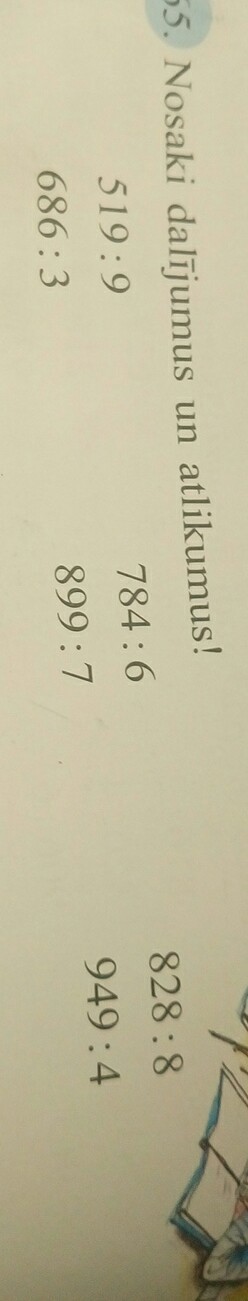 55. Nosaki dalījumus un atlikumus!
519 : 9 784 : 6 828 : 8
686 : 3 899 : 7 949 : 4